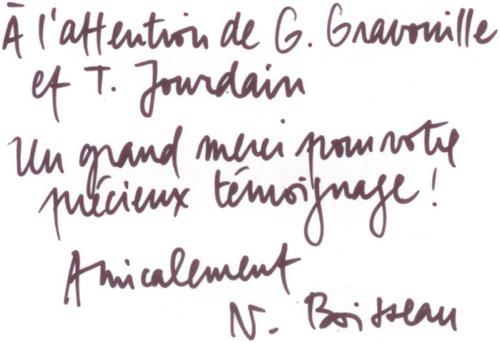 À l'attention de G. Gravouille
et T. Jourdain
Un grand merci pour votre
précieux témoignage !
Amicalement
N. Boisseau